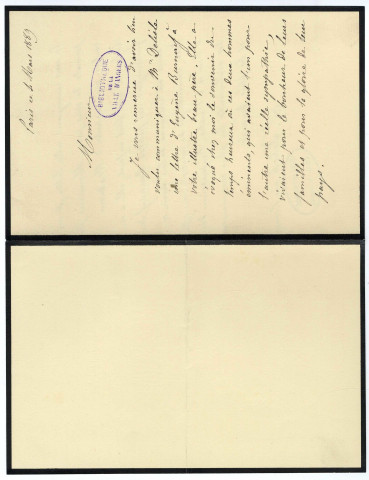 Paris ce 4 Mars 1889
BIBLIOTHÈQUE
DE LA
VILLE D'ANGERS
Monsieur
je vous remercie d'avoir bien
voulu communiquer à Mr Delisle
une lettre d'Eugène Burnouf à
votre illustre beau-père. Elle a
évoqué chez moi le souvenir du
temps heureux où ces deux hommes
éminents, qui avaient l'un pour
l'autre une réelle sympathie,
vivaient pour le bonheur de leurs
familles et pour la gloire de leur
pays.